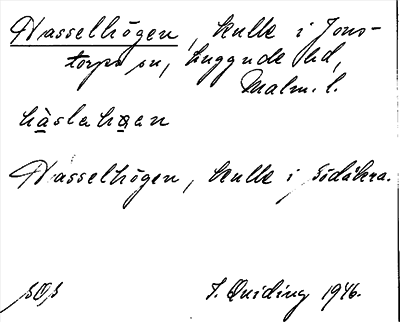 Hasselhögen, kulle i Jons-
torps sn, Luggude hd,
Malm. l.
hàslahøan
Hasselhögen, kulle i Södåkra.
SOS J. Quiding 1946.